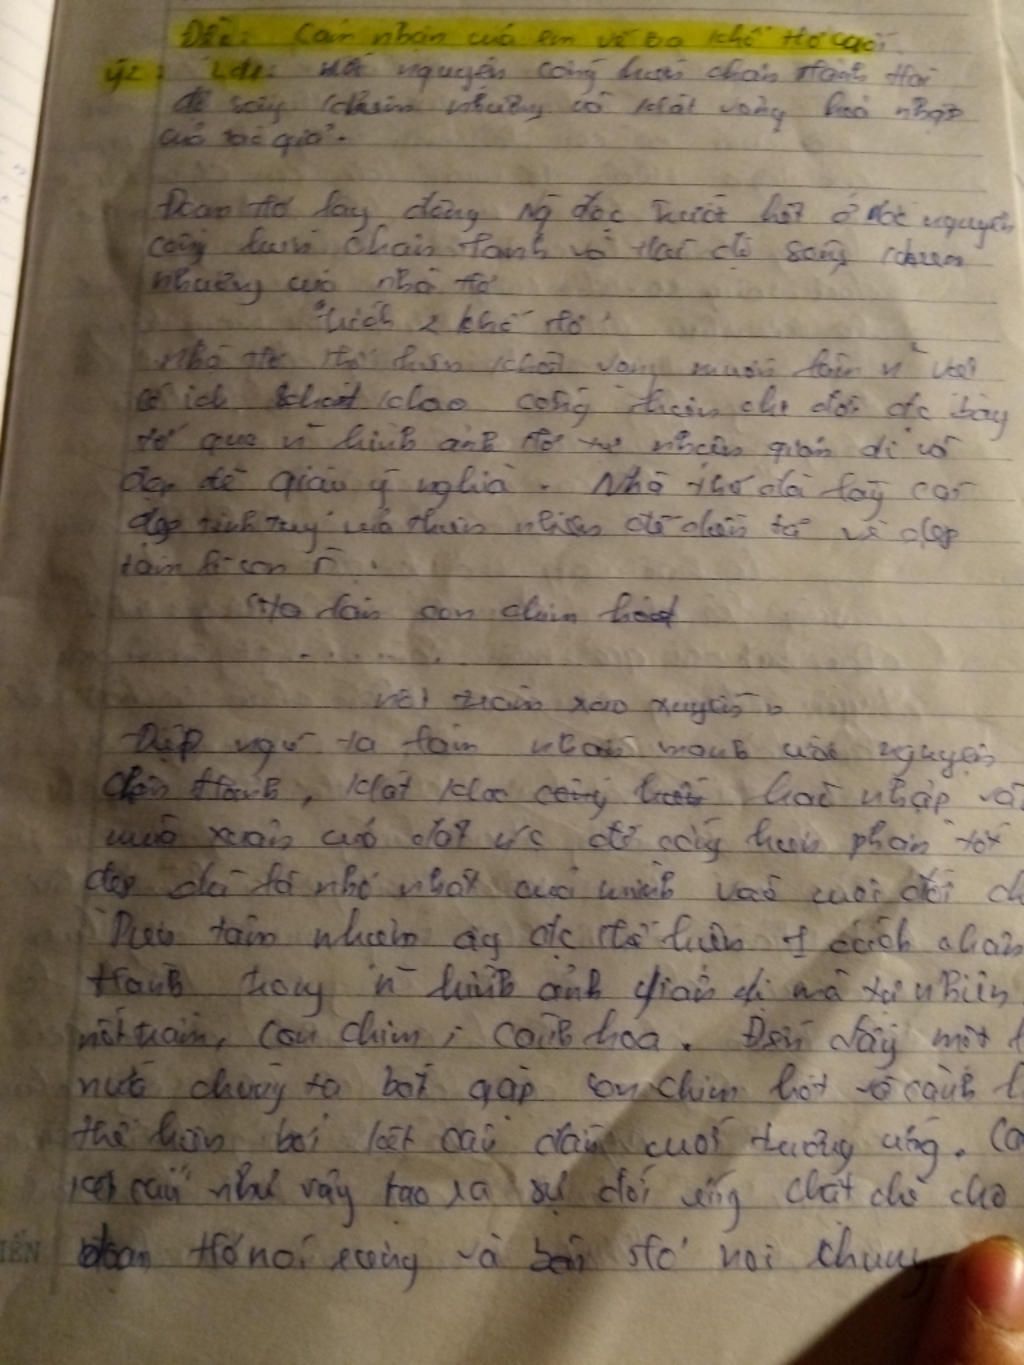 Đề: Cảm nhận của em về ba khổ thơ cuối
ý2: Lđ2: ước nguyện cống hiến chân thành thái
độ sống khiêm nhường và khát vọng hoà nhập
của tác giả.
Đoạn thơ lay động ng đọc trước hết ở ước nguyện
cống hiến chân thành và thái độ sống khiêm
nhường của nhà thơ
"trích 2 khổ thơ"
Nhà thơ thể hiện khát vọng muốn làm n~ việc
có ích khát khao cống hiến cho đời đc bày
tỏ qua n~ hình ảnh thơ tự nhiên giản dị và
đẹp đẽ giàu ý nghĩa. Nhà thơ đã lấy cái
đẹp tinh tuý của thiên nhiên để diễn tả vẻ đẹp
tâm hồn con n
"Ta làm con chim hót
.......
một trầm xao xuyến"
Điệp ngữ ta làm nhấn mạnh ước nguyện
chân thành, khát khao cống hiến hoà nhập và
mùa xuân của đất nc để cống hiến phần tốt
đẹp dù là nhỏ nhất của mình vào cuộc đời
Điều tâm nhiệm ấy đc thể hiện 1 cách chân
thành trong n~ hình ảnh giản dị mà tự nhiên
nốt trầm, con chim, cành hoa. Đến đây một
nữa chúng ta bắt gặp con chim hót và cành
thể hiện bởi kết cấu đầu cuối tương ứng.
kết cấu như vậy tạo ra sự đối ứng chặt chẽ cho
đoạn thơ nói riêng và bài thơ nói chung